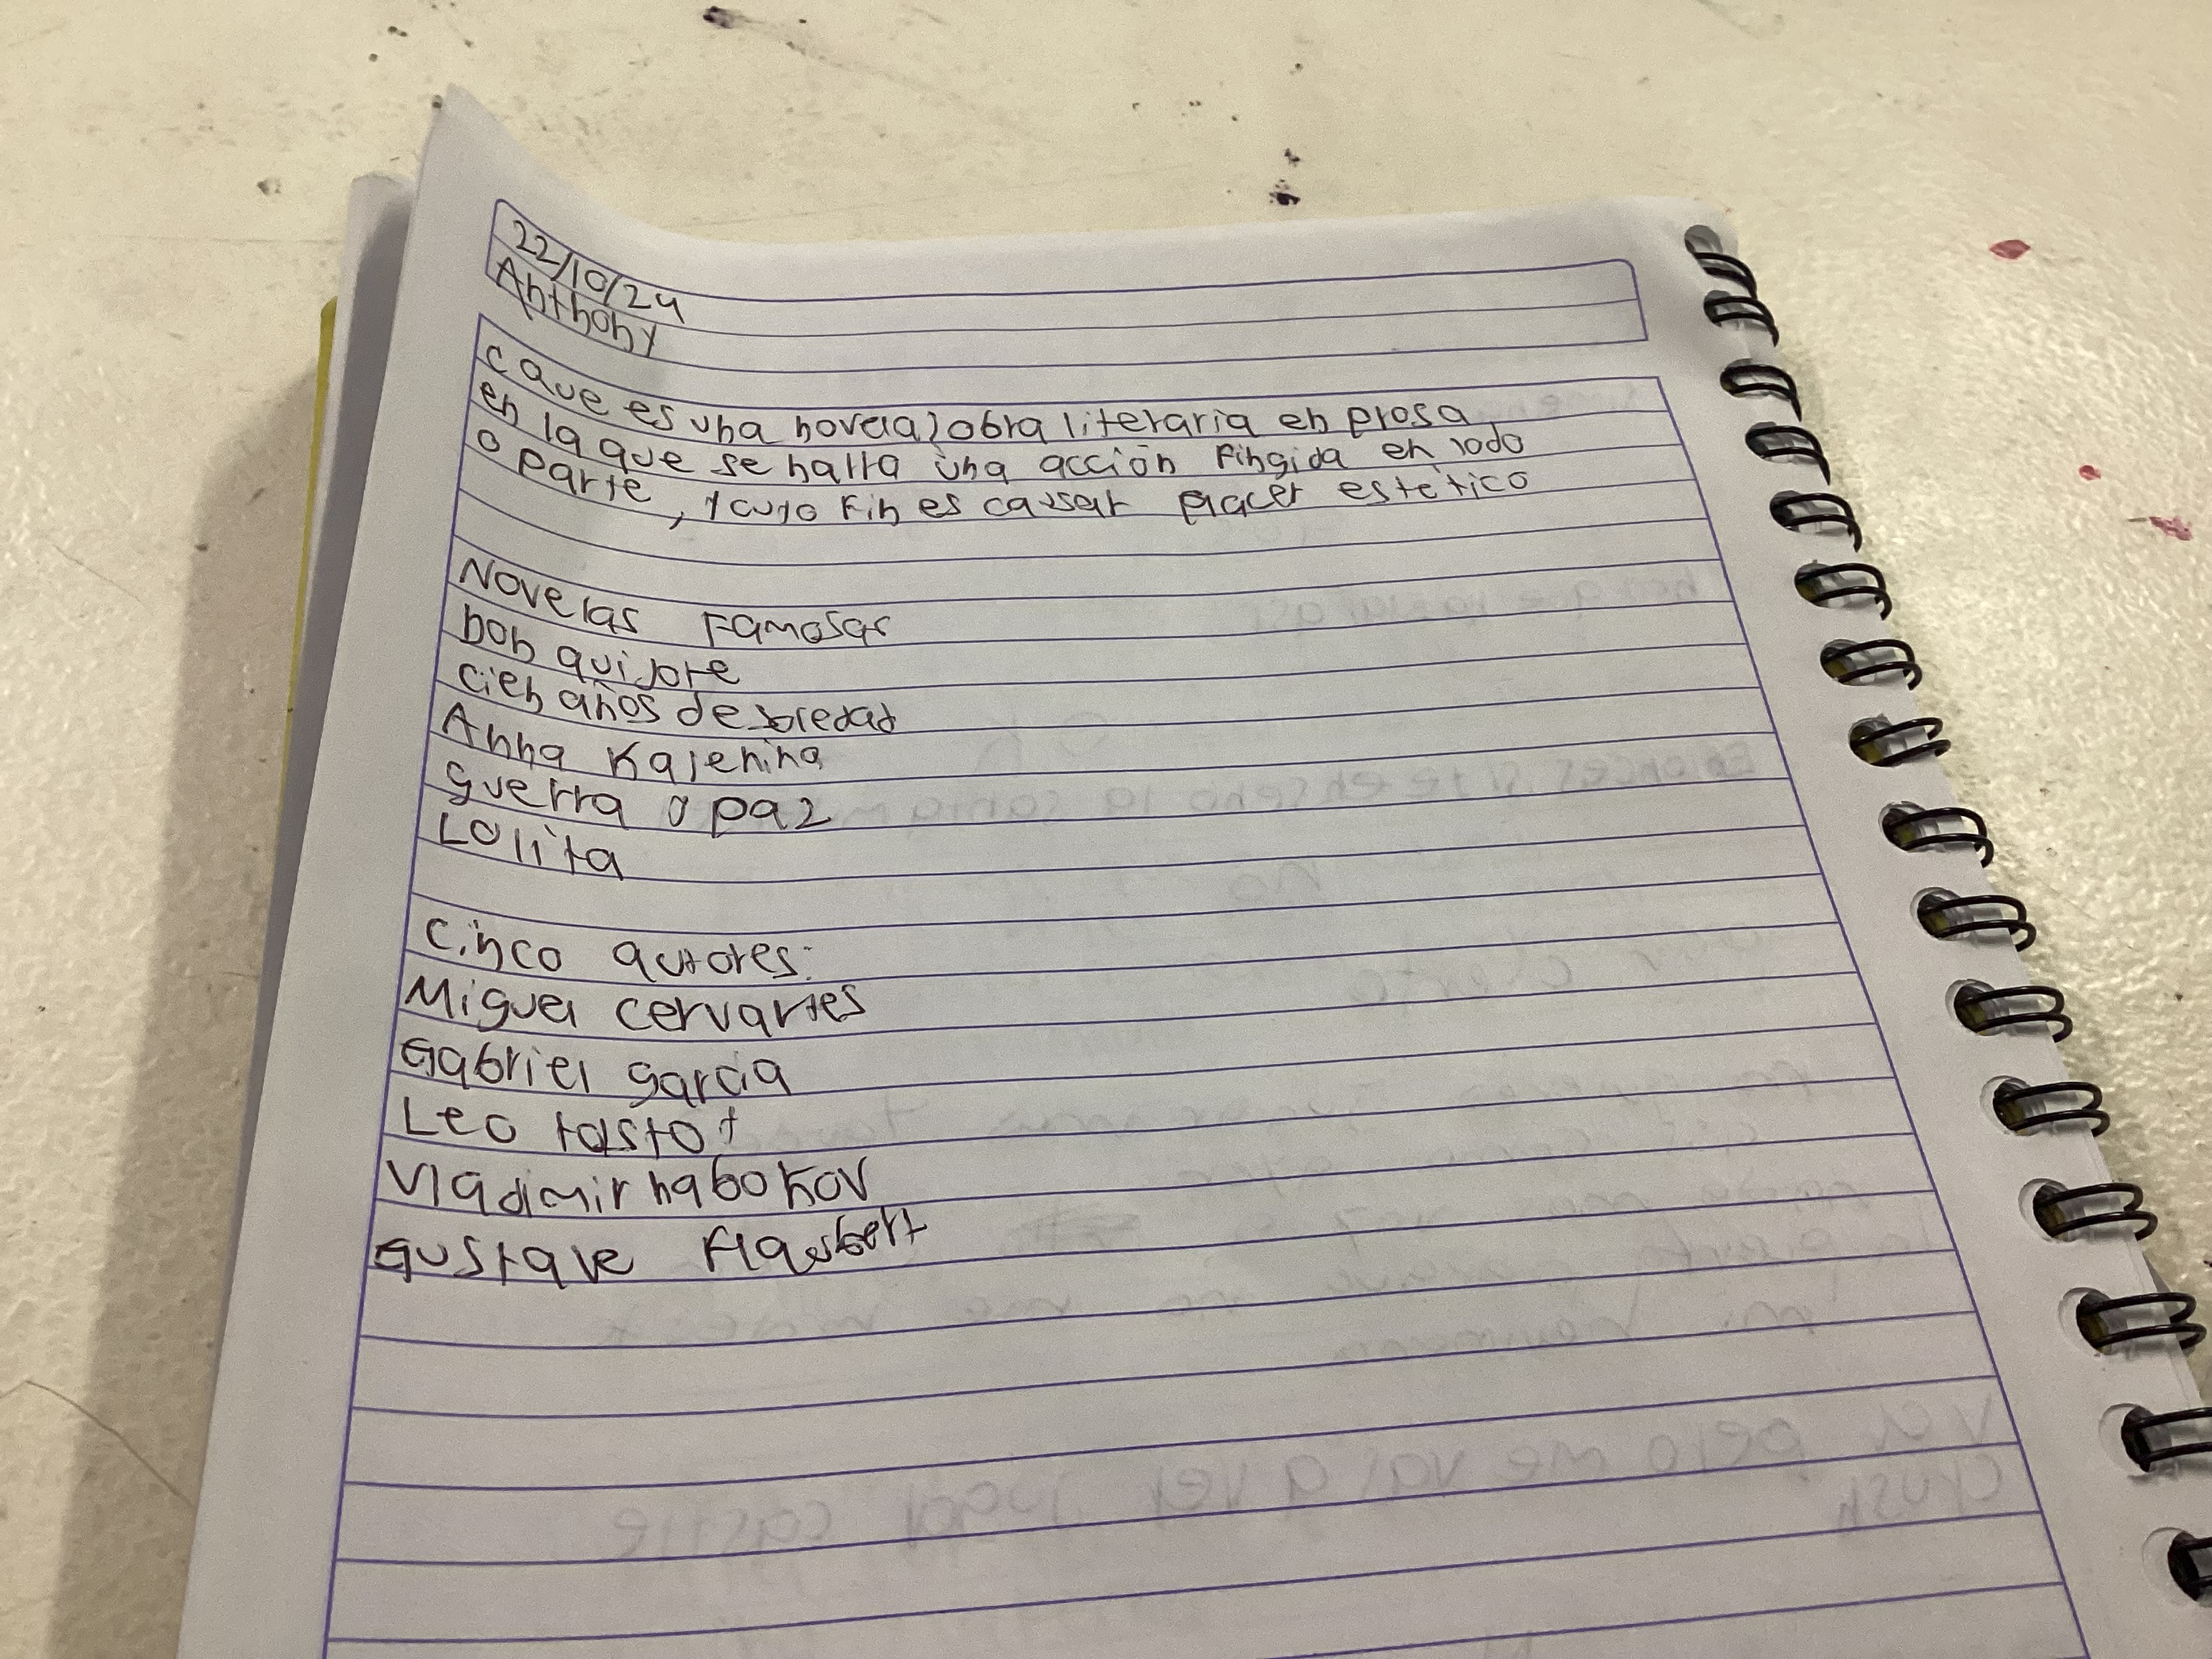 22/10/24
Anthony
¿que es una novela? obra literaria en prosa
en la que se halla una acción fingida en todo
o parte, y cuyo fin es causar placer estético
Novelas Famosas
Don quijote
cien años de soledad
Anna Karenina
guerra o paz
Lolita
cinco autores:
Miguel cervantes
Gabriel garcia
Leo
Vladimir nabokov
Gustave Flaubert